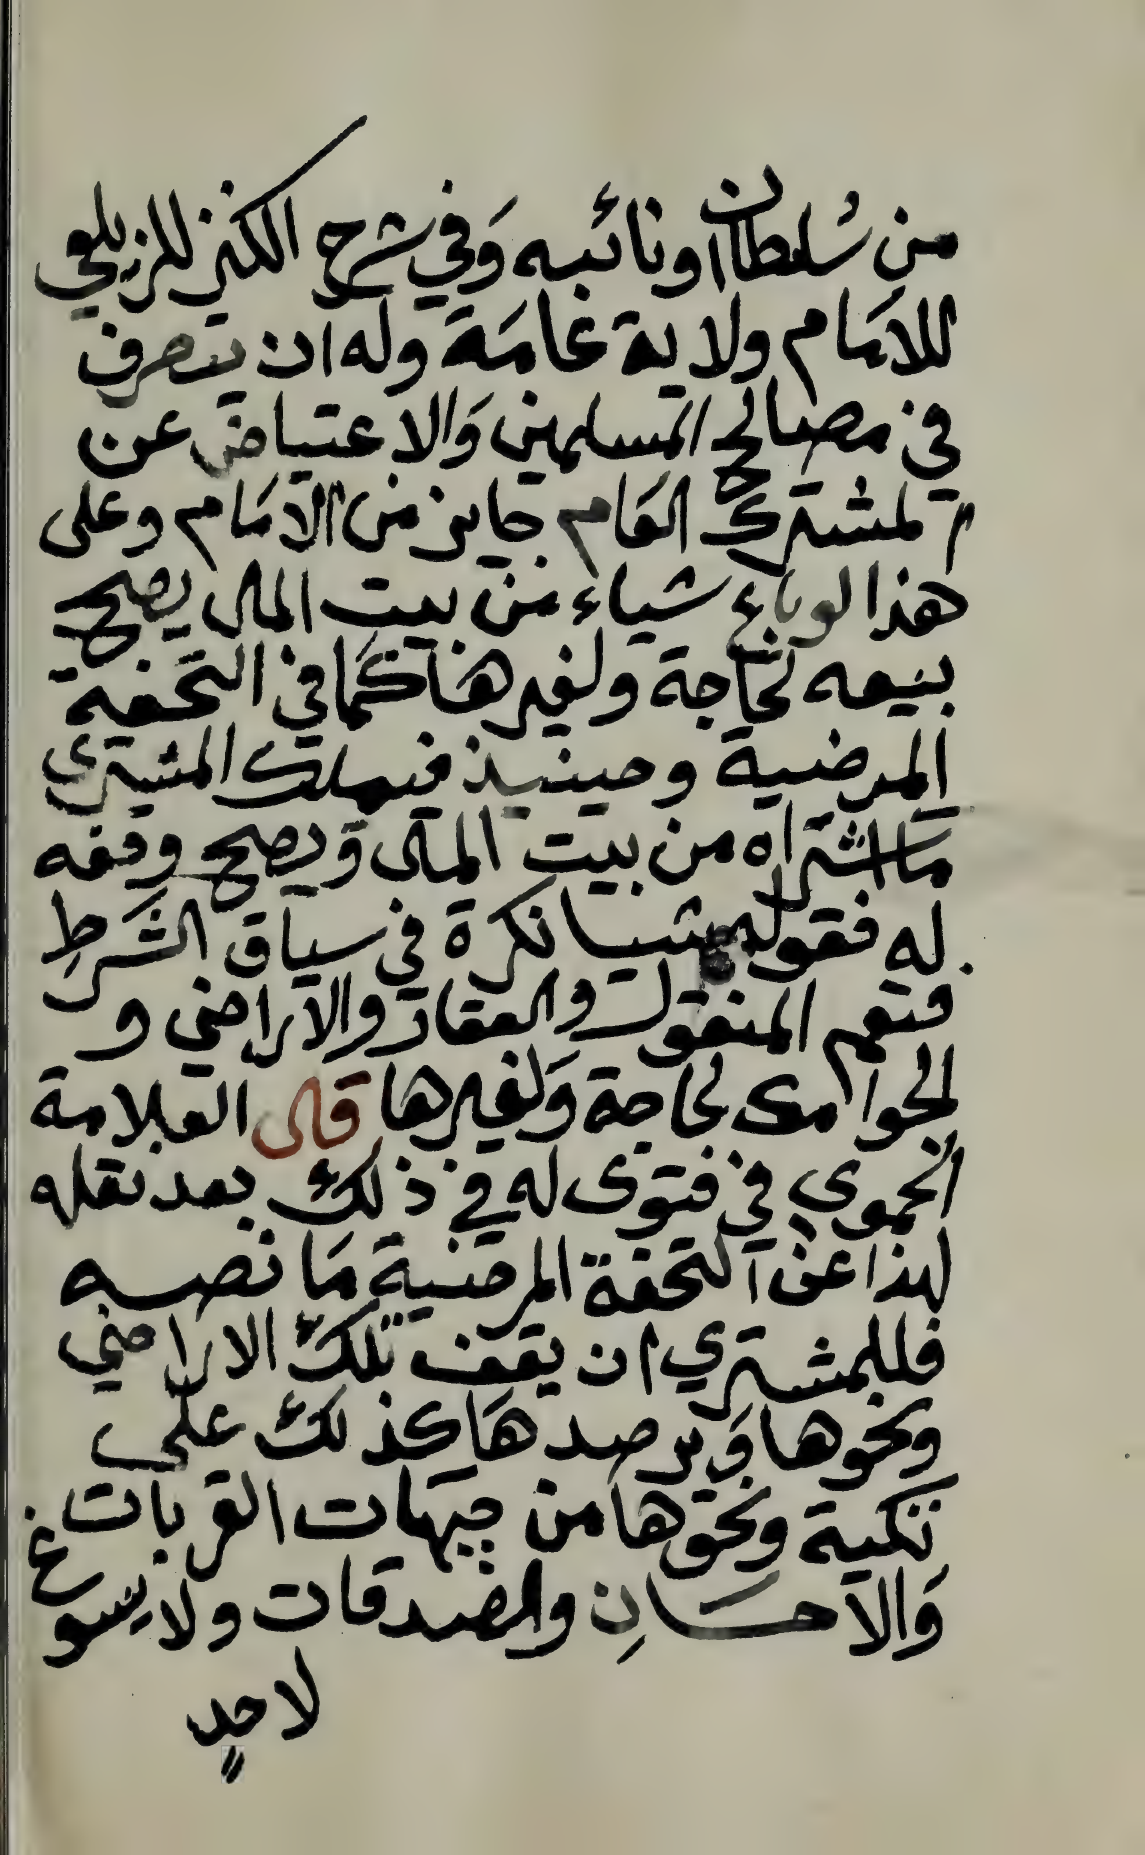 من سُلطان او نائبه وَفي شرح الكنز للزيلعي
للامَام ولاية عامَة وله ان يتصرف
في مصالح المسلمين وَالاعتياض عن
المشترك العَام جايز من الامَام وعلى
هذا لو باع شياء من بيت المال يصح
بيعه لحَاجة ولغيرها كمَا في التحفة
المرضية وحينيذ فيملك المشتري
مَا اشتراه من بيت المال وَيصح وقفه
له فقوله شيا نكرة في سياق الشَرطِ
فتعم المنقول والعقار والاراضي و
الجوامك لحاجة وَلغيرها قال العلامة
الحموي في فتوى له في ذلك بعد نقله
لهذا عن التحفة المرضية مَا نصه
فللمشتري ان يقف تلك الاراضي
ونحوها وَيرصدهَا كذلك على
تكية ونحوها من جهَات القربات
وَالاحسَانِ والصدقات ولا يسوغ
لاحدٍ